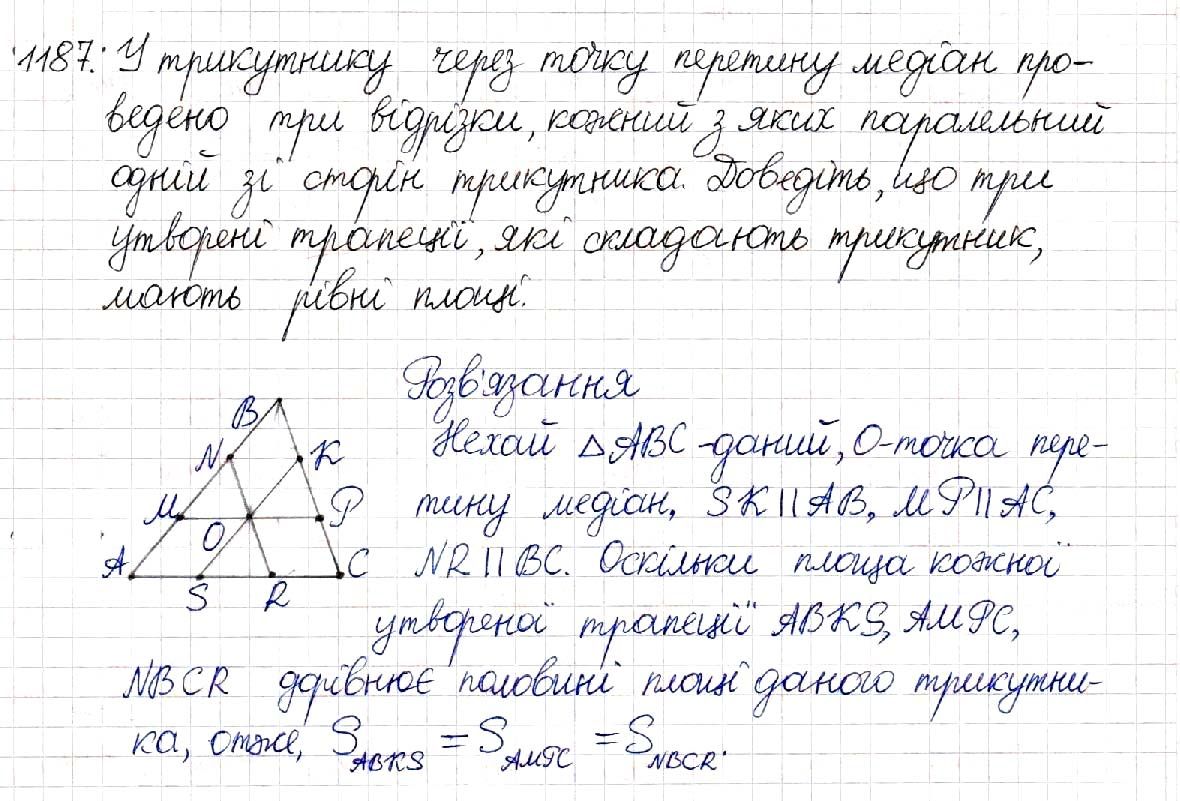 1187. У трикутнику через точку перетину медіан про-
ведено три відрізки, кожний з яких паралельний
одній зі сторін трикутника. Доведіть, що три
утворені трапеції, які складають трикутник,
мають рівні площі.
Розв'язання
B
N
K
M
O
P
A
S
R
C
Нехай △ABC -даний, O-точка пере-
тину медіан, SK||AB, MP||AC,
NR||BC. Оскільки площа кожної
утвореної трапеції ABKS, AMPC,
NBCR дорівнює половині площі даного трикутни-
ка, отже, S_ABKS = S_AMPC = S_NBCR.